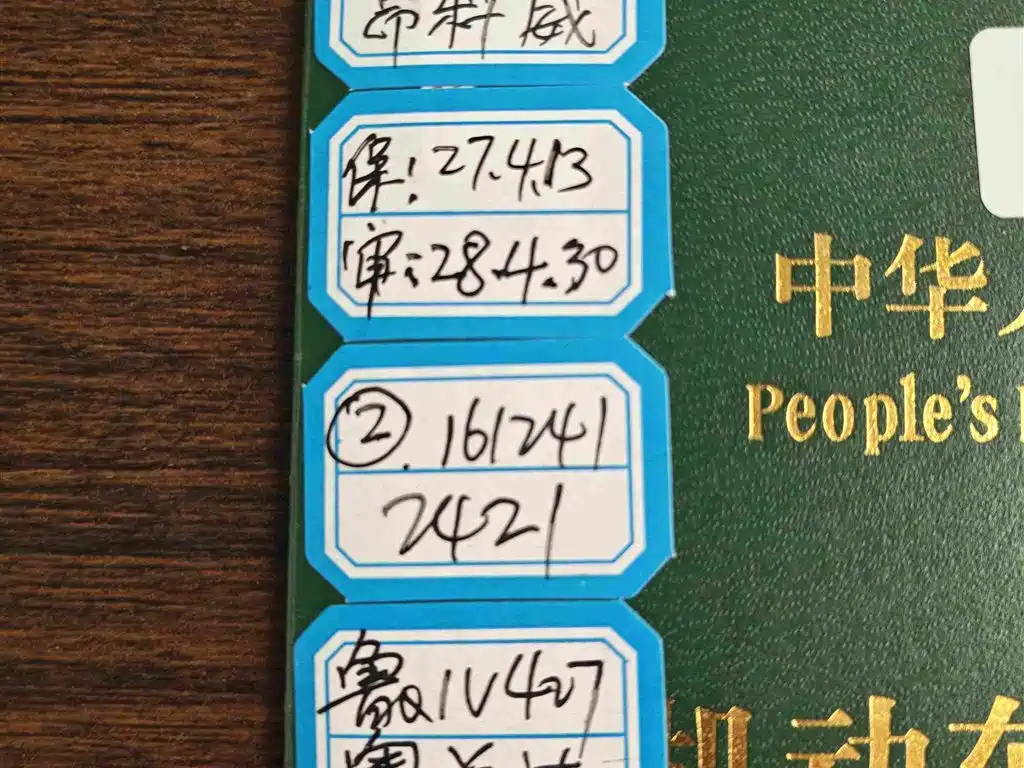 昂科威
保:27.4.13
审:28.4.30
②.161241
2421
鲁Q1V427
中华
People's
机动车